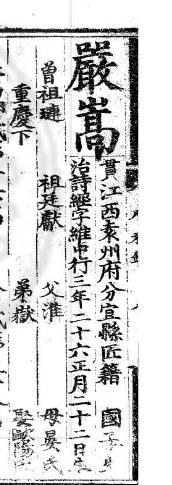 嚴嵩
貫江西袁州府分宜縣匠籍 國子生
治詩經字維中行三年二十六正月二十二日生
曾祖璉 祖廷獻 父淮 母晏氏
重慶下 弟嶽 娶歐陽氏